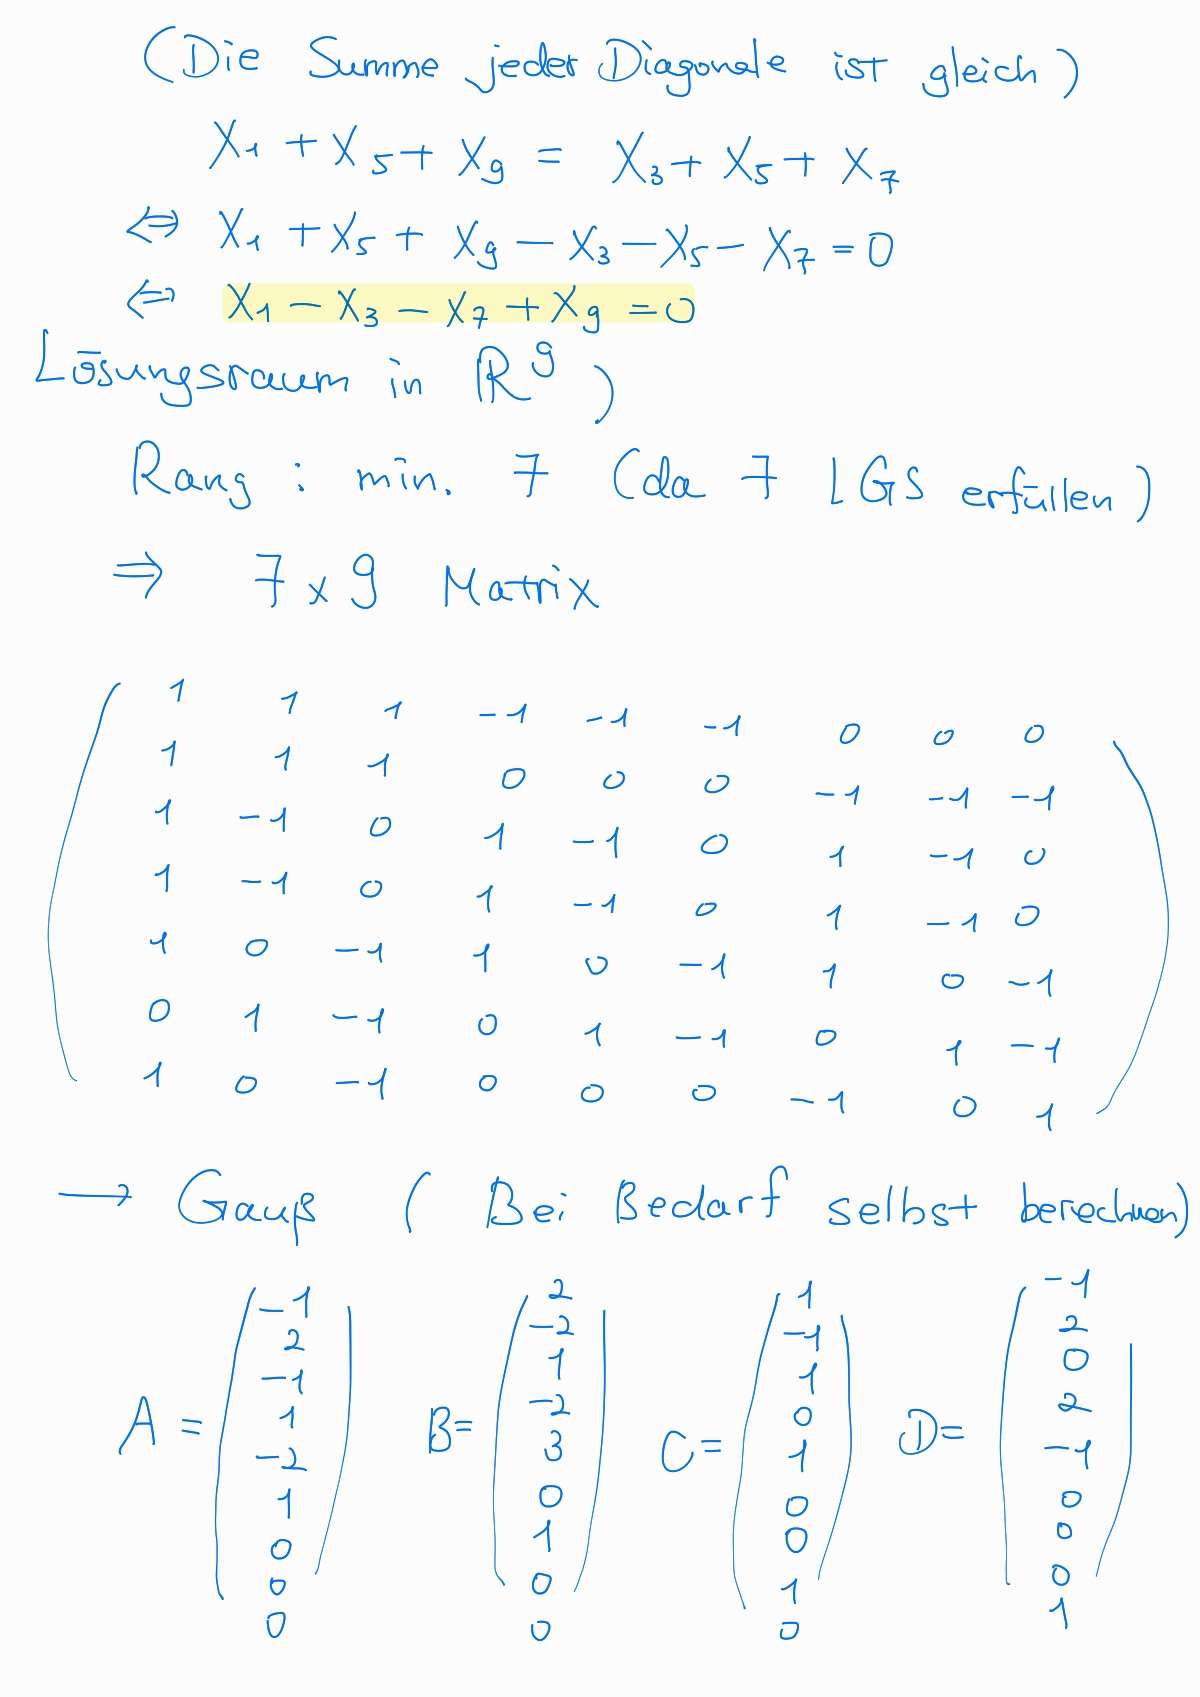 (Die Summe jeder Diagonale ist gleich)
X₁ + X₅ + X₉ = X₃ + X₅ + X₇
⇔ X₁ + X₅ + X₉ − X₃ − X₅ − X₇ = 0
⇔ X₁ − X₃ − X₇ + X₉ = 0
Lösungsraum in ℝ⁹)
Rang : min. 7 (da 7 LGS erfüllen)
⇒ 7 x 9 Matrix
1 1 1 -1 -1 -1 0 0 0
1 1 1 0 0 0 -1 -1 -1
1 -1 0 1 -1 0 1 -1 0
1 -1 0 1 -1 0 1 -1 0
1 0 -1 1 0 -1 1 0 -1
0 1 -1 0 1 -1 0 1 -1
1 0 -1 0 0 0 -1 0 1
→ Gauß (Bei Bedarf selbst berechnen)
A = (-1 2 -1 1 -2 1 0 0 0) B = (2 -2 1 -2 3 0 1 0 0) C = (1 -1 1 0 1 0 0 1 0) D = (-1 2 0 2 -1 0 0 0 1)